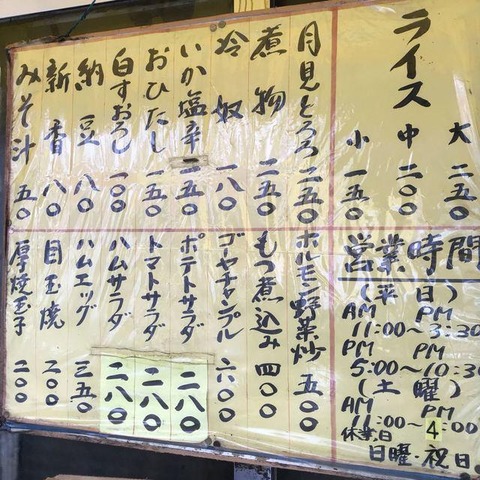 ライス
大 二五〇
中 二〇〇
小 一五〇
月見とろろ 二五〇
煮物 二五〇
冷奴 一八〇
いか塩辛 二五〇
おひたし 一五〇
白すおろし 一〇〇
納豆 八〇
新香 八〇
みそ汁 五〇
営業時間
(平日)
AM PM
11:00~3:30
PM PM
5:00~10:30
(土曜)
AM PM
11:00~4:00
休業日
日曜・祝日
ホルモン野菜炒 五〇〇
もつ煮込み 四〇〇
ゴーヤチャンプル 六〇〇
ポテトサラダ 二八〇
トマトサラダ 二八〇
ハムサラダ 二八〇
ハムエッグ 三五〇
目玉焼 二〇〇
厚焼玉子 二〇〇